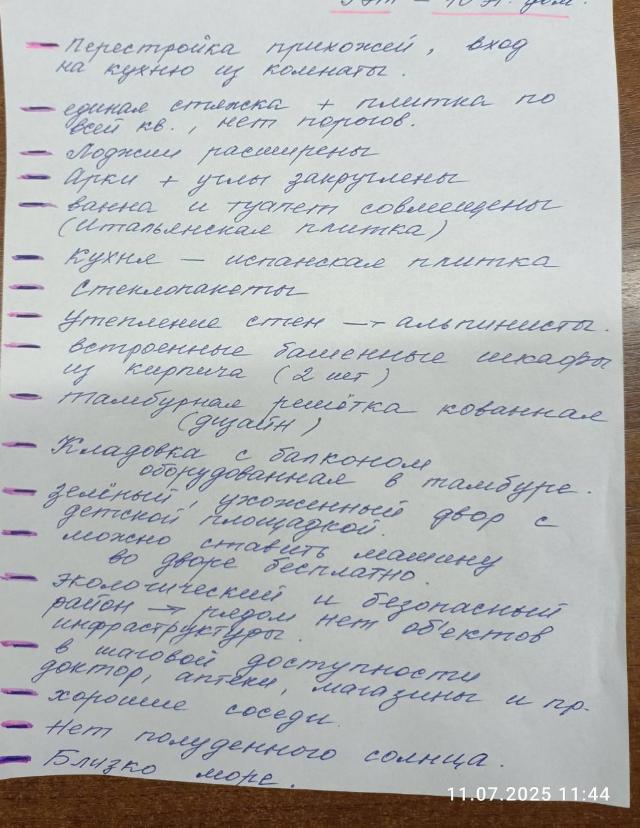 5 эт — 10 эт. дом.
— Перестройка прихожей, вход
на кухню из комнаты.
— единая стяжка + плитка по
всей кв., нет порогов.
— Лоджии расширены
— Арки + углы закруглены
— ванна и туалет совмещены
(Итальянская плитка)
— Кухня — испанская плитка
— Стеклопакеты
— Утепление стен → альпинисты.
— встроенные башенные шкафы
из кирпича (2 шт)
— тамбурная решётка кованная
(дизайн)
— Кладовка с балконом
оборудованная в тамбуре.
— зелёный, ухоженный двор с
детской площадкой.
— можно ставить машину
во дворе бесплатно.
— экологический и безопасный
район → рядом нет объектов
инфраструктуры.
— в шаговой доступности
доктор, аптеки, магазины и пр.
— хорошие соседи.
— Нет полуденного солнца.
— Близко море.
11.07.2025 11:44